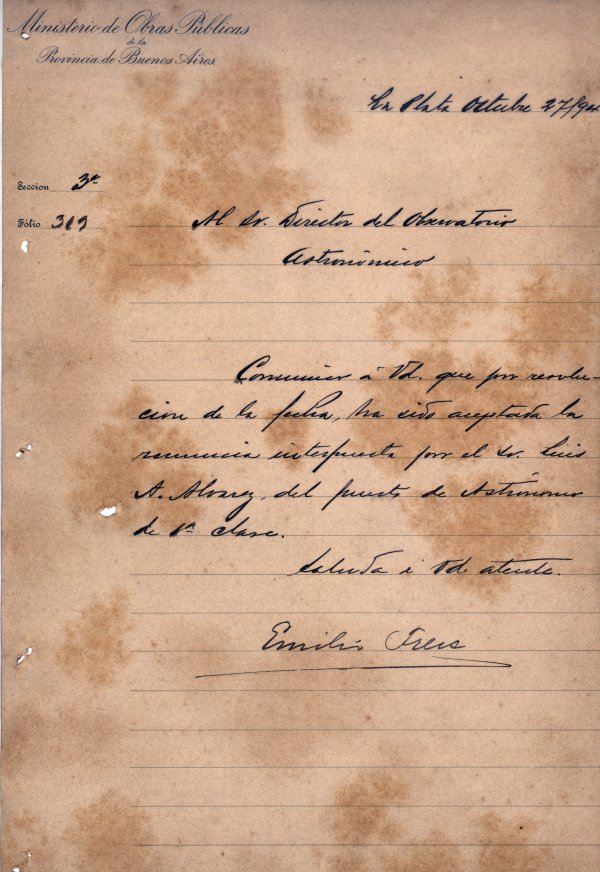 Ministerio de Obras Públicas
de la
Provincia de Buenos Aires
La Plata Octubre 27/94
Seccion 3ª
Fólio 319
Al Sr. Director del Observatorio
Astronómico
Comunico á Vd. que por resolu-
cion de la fecha, ha sido aceptada la
renuncia interpuesta por el Sr. Luis
A. Alvarez, del puesto de Astrónomo
de 1ª clase.
Saluda á Vd. atente.
Emilio Frers